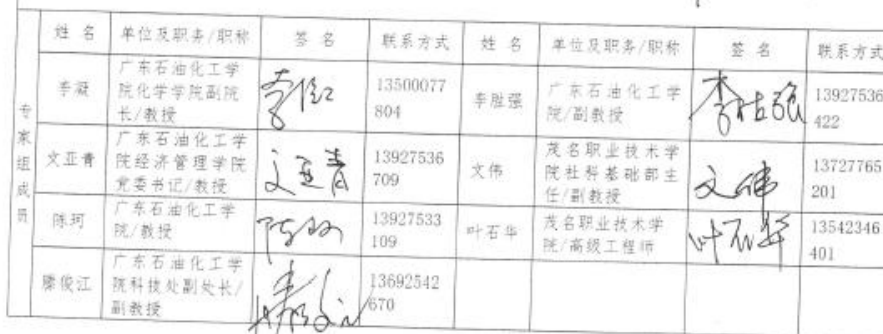 姓 名 单位及职务/职称 签 名 联系方式 姓 名 单位及职务/职称 签 名 联系方式
专家组成员
李凝
广东石油化工学
院化学学院副院
长/教授
李凝
13500077
804
李胜强
广东石油化工学
院/副教授
李胜强
13927536
422
文亚青
广东石油化工学
院经济管理学院
党委书记/教授
文亚青
13927536
709
文伟
茂名职业技术学
院社科基础部主
任/副教授
文伟
13727765
201
陈珂
广东石油化工学
院/教授
陈珂
13927533
109
叶石华
茂名职业技术学
院/高级工程师
叶石华
13542346
401
滕俊江
广东石油化工学
院科技处副处长/
副教授
滕俊江
13692542
670